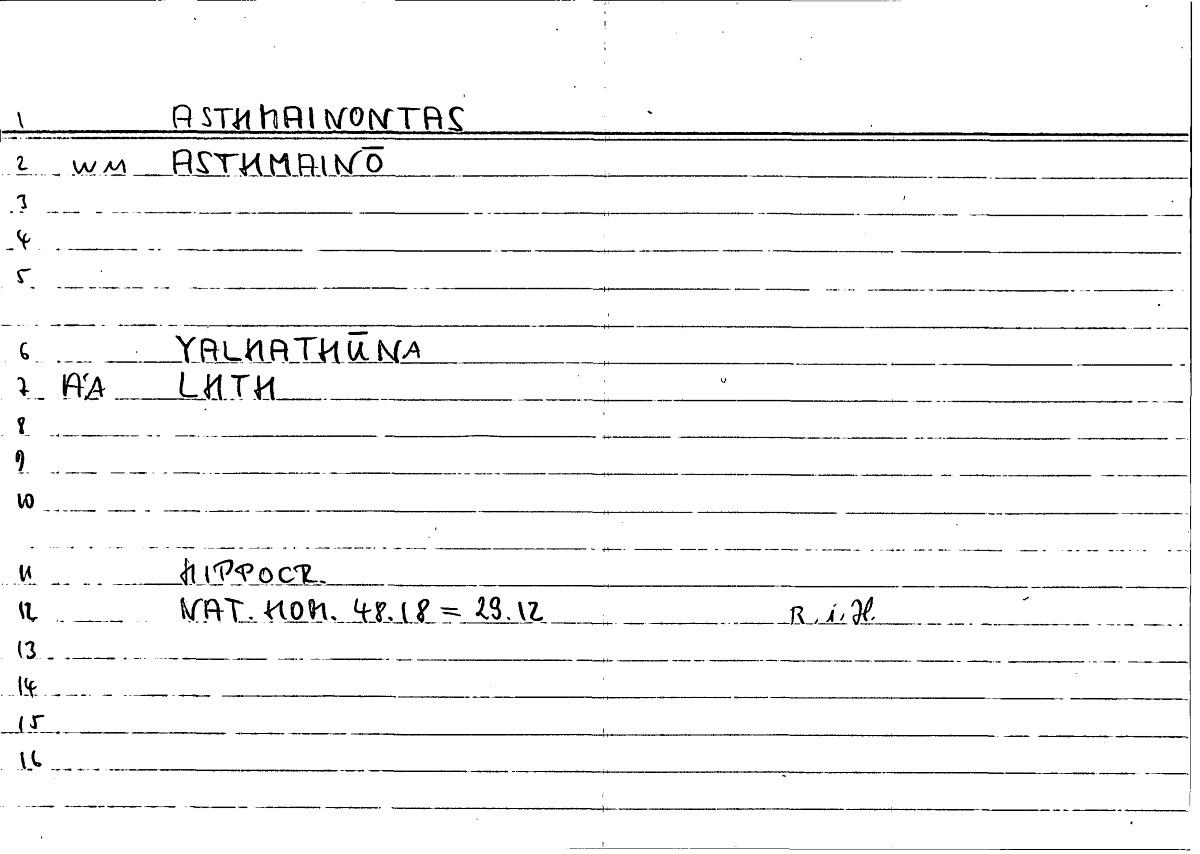 1 ASTHMAINONTAS
2 WM ASTHMAINŌ
3
4
5
6 YALHATHŪNA
7 A'A LHTH
8
9
10
11 HIPPOCR.
12 NAT. HOM. 48.18 = 29.12 R. i. H.
13
14
15
16